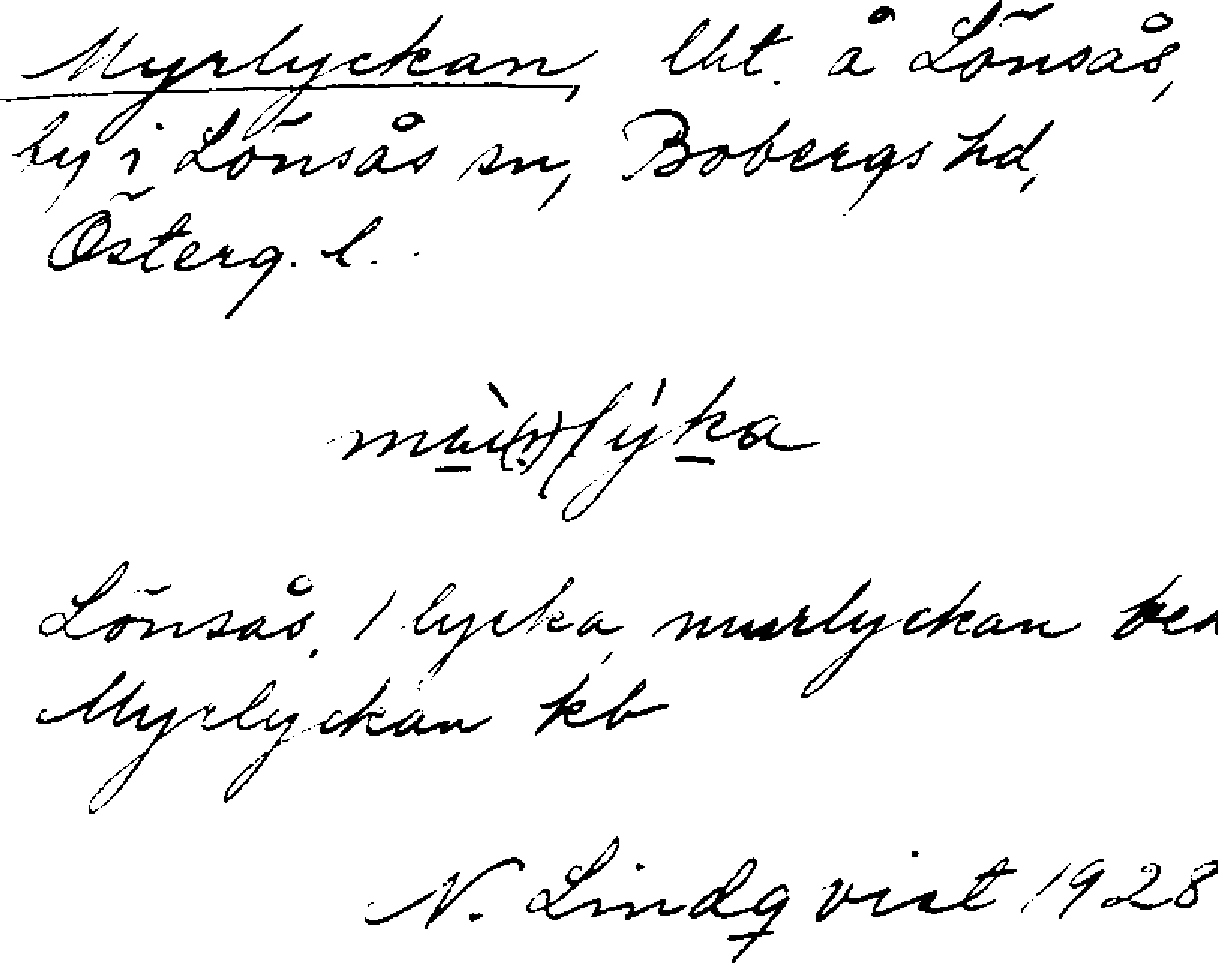 Myrlyckan, lht. å Lönsås,
by i Lönsås sn, Bobergs hd,
Österg. l.
Lönsås. 1 lycka, murlyckan
Myrlyckan kb
N. Lindqvist 1928